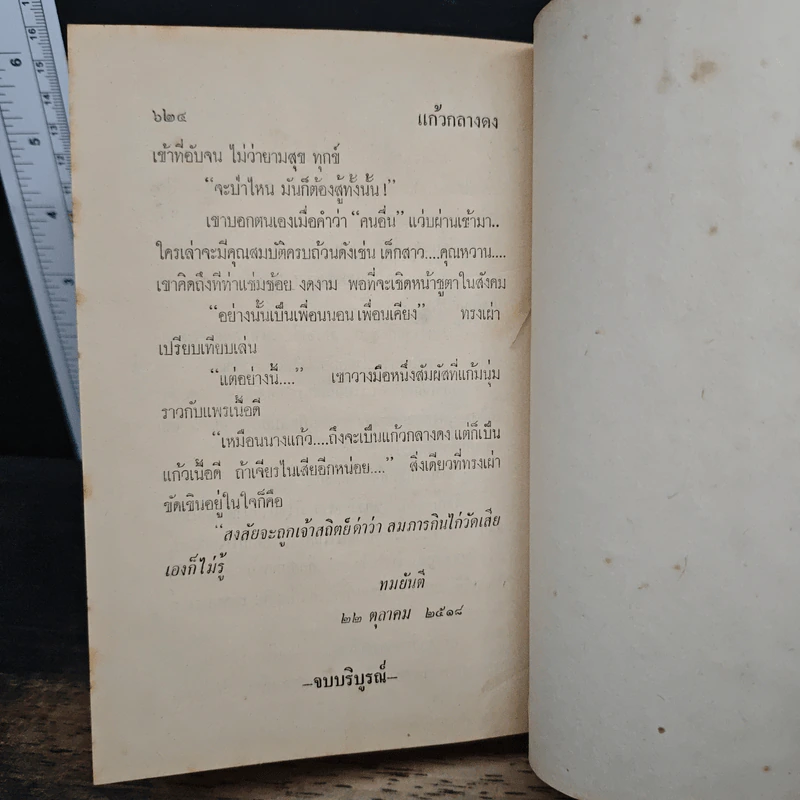 ๖๒๔ แก้วกลางดง
เข้าที่อับจน ไม่ว่ายามสุข ทุกข์
“จะป่าไหน มันก็ต้องสู้ทั้งนั้น !”
เขาบอกตนเองเมื่อคำว่า “คนอื่น” แว่บผ่านเข้ามา..
ใครเล่าจะมีคุณสมบัติครบถ้วนดังเช่น เด็กสาว....คุณหวาน....
เขาคิดถึงทีท่าแช่มช้อย งดงาม พอที่จะเชิดหน้าชูตาในสังคม
“อย่างนั้นเป็นเพื่อนนอน เพื่อนเคียง” ทรงเผ่า
เปรียบเทียบเล่น
“แต่อย่างนี้....” เขาวางมือหนึ่งสัมผัสที่แก้มนุ่ม
ราวกับแพรเนื้อดี
“เหมือนนางแก้ว....ถึงจะเป็นแก้วกลางดง แต่ก็เป็น
แก้วเนื้อดี ถ้าเจียรไนเสียอีกหน่อย....” สิ่งเดียวที่ทรงเผ่า
ขัดเขินอยู่ในใจก็คือ
“สงสัยจะถูกเจ้าสถิตย์ด่าว่า สมภารกินไก่วัดเสีย
เองก็ไม่รู้
ทมยันตี
๒๒ ตุลาคม ๒๕๑๘
–จบบริบูรณ์–
6
5
4
16
15
14
13
12
11